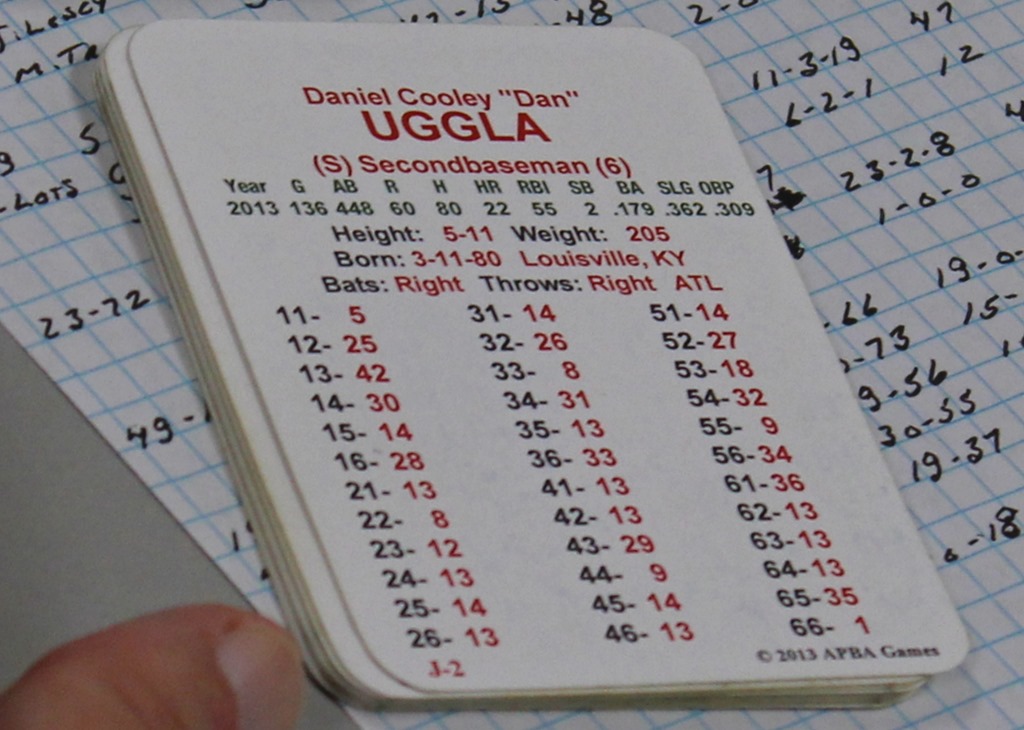 J. Lescy
M. TR
47-15
48
47
11-3-19
12
6-2-1
23-2-8
1-0-0
LOTS
19-0-
15-
23-72
66
-73
49-
9-56
30-55
19-37
-18
Daniel Cooley "Dan"
UGGLA
(S) Secondbaseman (6)
Year G AB R H HR RBI SB BA SLG OBP
2013 136 448 60 80 22 55 2 .179 .362 .309
Height: 5-11 Weight: 205
Born: 3-11-80 Louisville, KY
Bats: Right Throws: Right ATL
11- 5 31- 14 51- 14
12- 25 32- 26 52- 27
13- 42 33- 8 53- 18
14- 30 34- 31 54- 32
15- 14 35- 13 55- 9
16- 28 36- 33 56- 34
21- 13 41- 13 61- 36
22- 8 42- 13 62- 13
23- 12 43- 29 63- 13
24- 13 44- 9 64- 13
25- 14 45- 14 65- 35
26- 13 46- 13 66- 1
J-2
© 2013 APBA Games